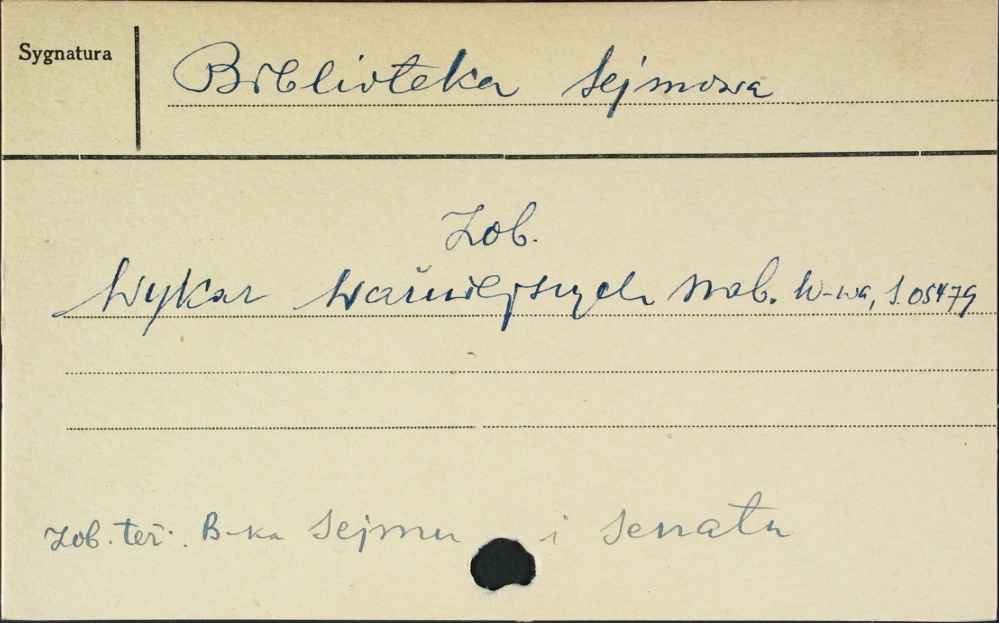 Sygnatura
Biblioteka Sejmowa
Zob.
Wykaz ważniejszych nab. W-wa, S. 05479
Zob. też: B-ka Sejmu i Senatu